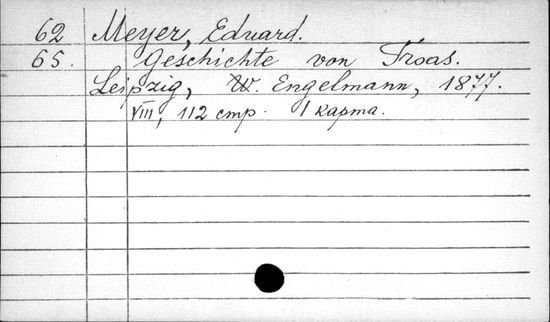 62 Meyer, Eduard.
65. Geschichte von Troas.
Leipzig, W. Engelmann, 1877.
VIII, 112 стр. 1 карта.